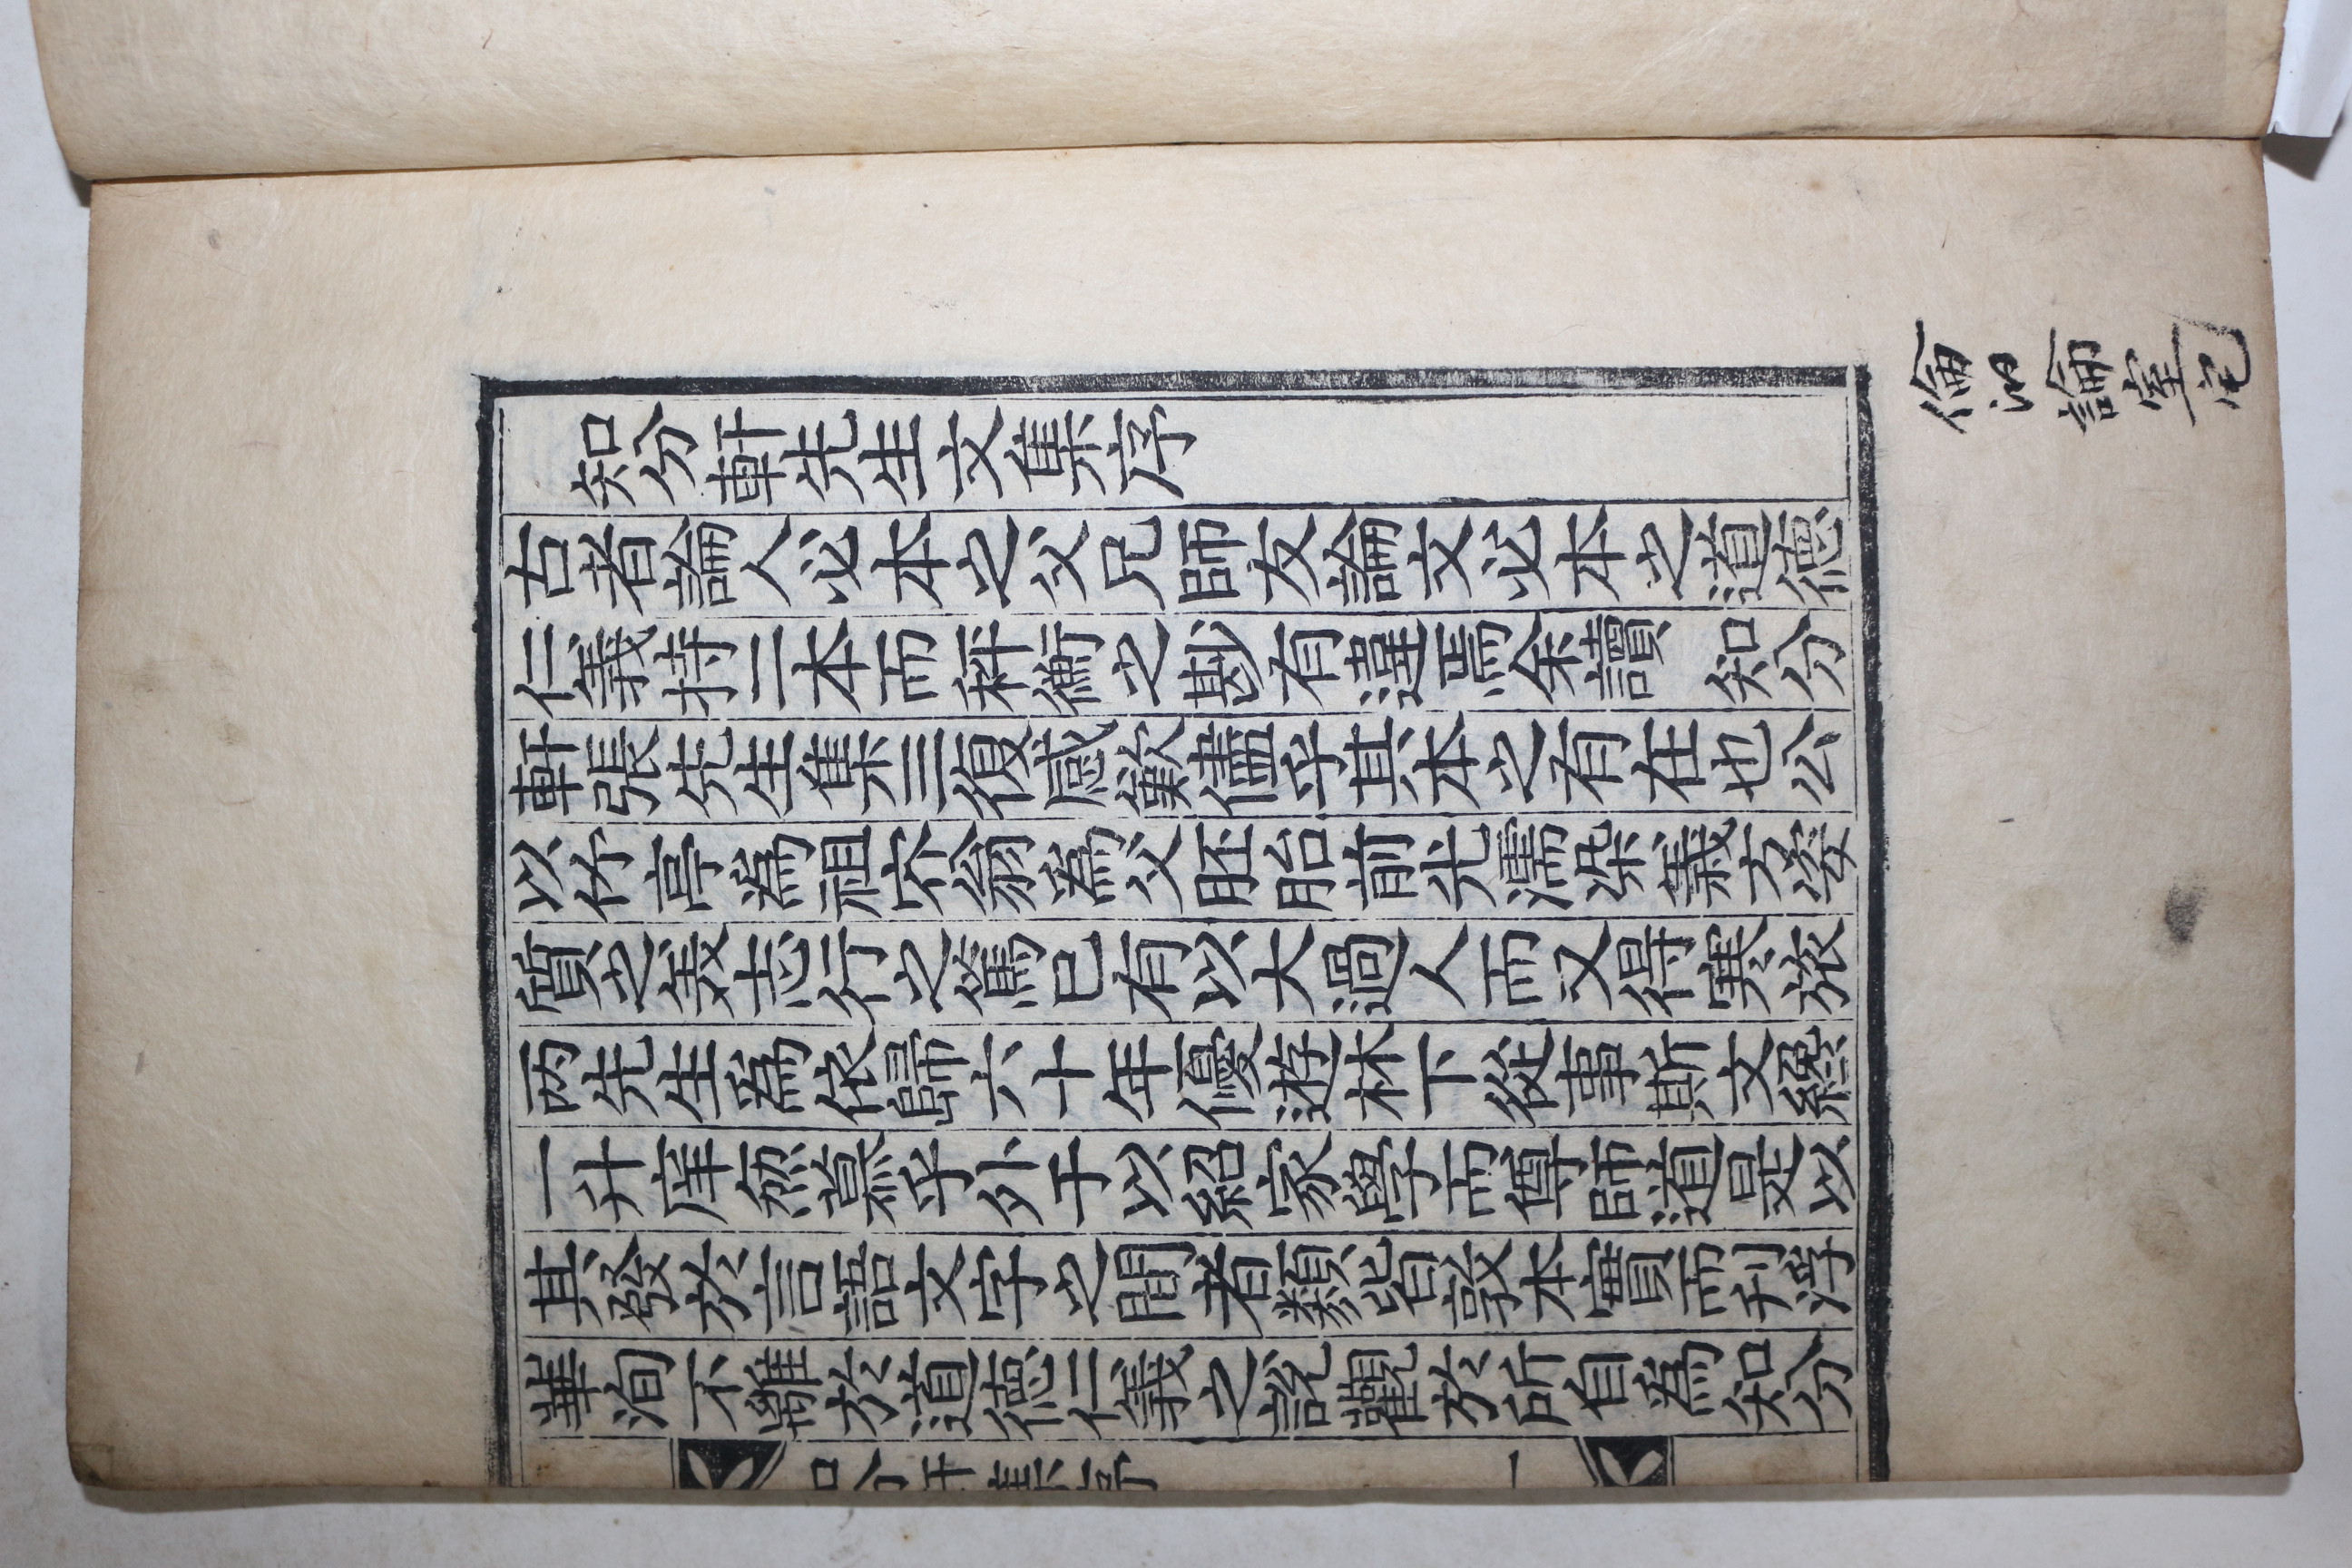 知分軒先生文集序
古者論人必本之父兄師友論文必本之道德
仁義持二本而秤衡之尠有違焉余讀 知分
軒張先生集三復感歎儘乎其本之有在也公
以竹亭爲祖㝏翁爲父胚胎前光濡染義方姿
質之美志行之篤已有以大過人而又得寒旅
两先生爲依歸六十年優遊林下從事斯文纔
一升庠無慕乎外于以紹家學而尊師道是以
其發於言語文字之間者類皆敦本實而刊浮
華洵不離於道德仁義之說觀於所自爲知分
知分軒集序 一
倫論室宅